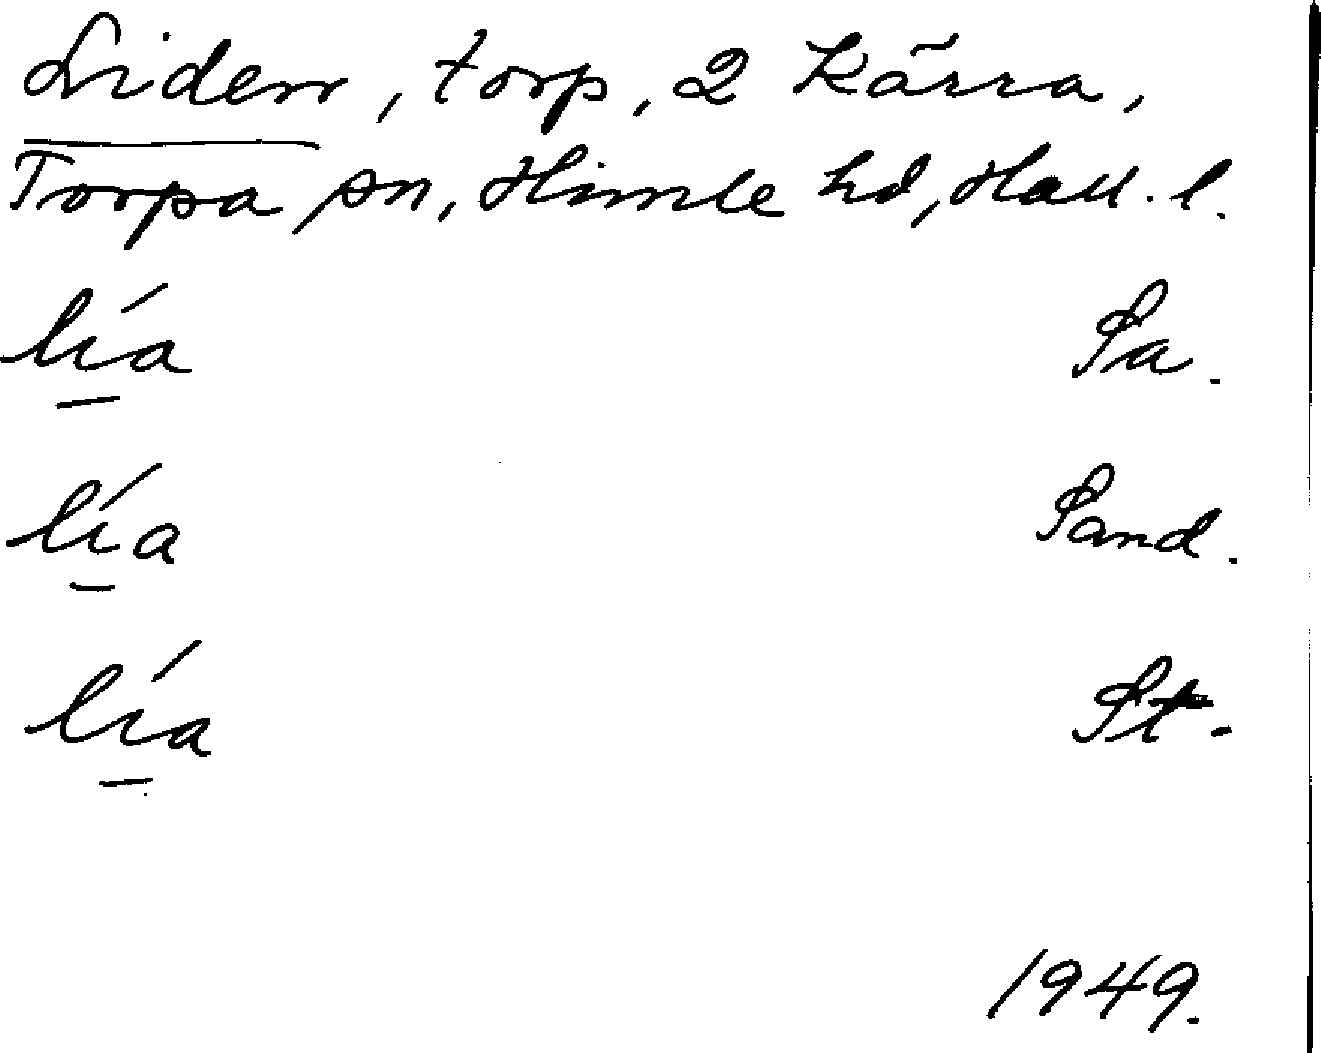 Liden, torp, 2 Kärra,
Torpa sn, Himle hd, Hall. l.
lía Sa.
lía Sand.
lía St.
1949.